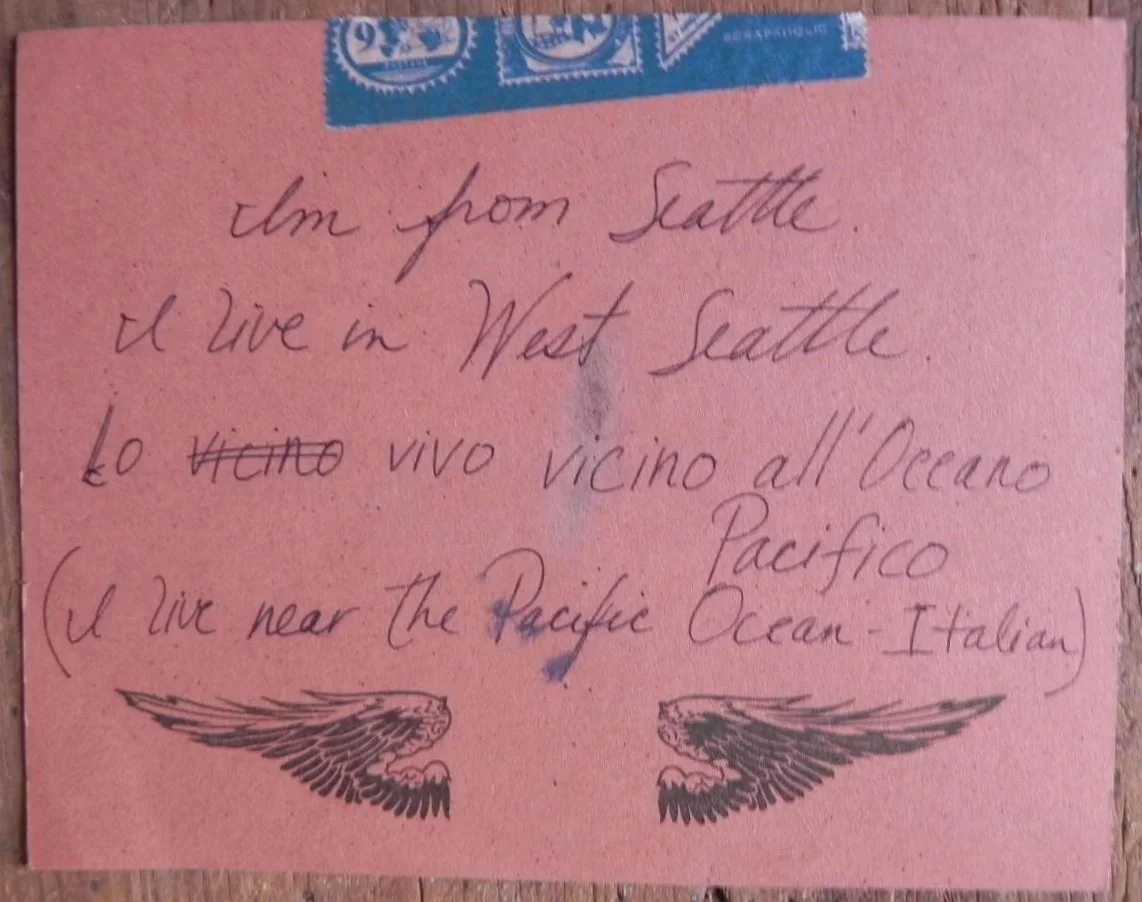 9
SCRAPAHOLIC
Im from Seattle.
I live in West Seattle.
Io vicino vivo vicino all'Oceano
Pacifico
(I live near the Pacific Ocean - Italian)